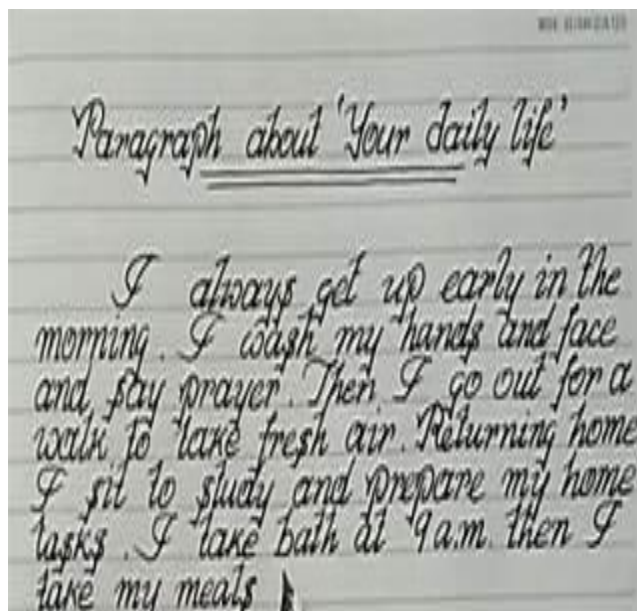 Paragraph about 'Your daily life'
I always get up early in the
morning. I wash my hands and face
and say prayer. Then I go out for a
walk to take fresh air. Returning home
I sit to study and prepare my home
tasks. I take bath at 9 a.m. then I
take my meals